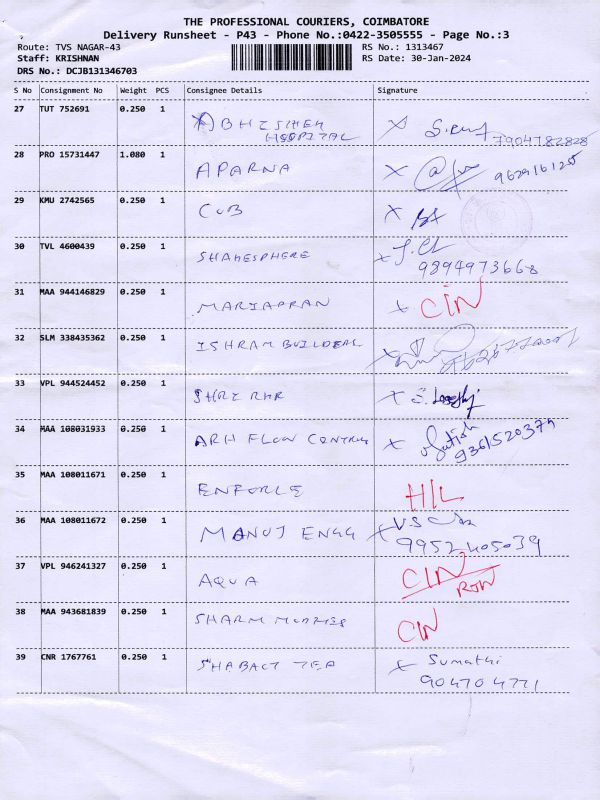 THE PROFESSIONAL COURIERS, COIMBATORE
Delivery Runsheet - P43 - Phone No.:0422-3505555 - Page No.:3
Route: TVS NAGAR-43 RS No.: 1313467
Staff: KRISHNAN RS Date: 30-Jan-2024
DRS No.: DCJB131346703
S No Consignment No Weight PCS Consignee Details Signature
27 TUT 752691 0.250 1
HOSPITAL 7904782828
28 PRO 15731447 1.080 1 APARNA 9629161255
29 KMU 2742565 0.250 1 CUB
30 TVL 4600439 0.250 1 SHAKESPHERE
9894973668
31 MAA 944146829 0.250 1 MARIAPRAN CIN
32 SLM 338435362 0.250 1 ISHRAM BUILDERS
33 VPL 944524452 0.250 1 SHRI RHR
34 MAA 108031933 0.250 1 ARH FLOW CONTROL Satish
9361520374
35 MAA 108011671 0.250 1 ENFORCE H/L
36 MAA 108011672 0.250 1 MANUJ ENGG V.S
9952405039
37 VPL 946241327 0.250 1 AQUA CIN
RTN
38 MAA 943681839 0.250 1 SHARM CIN
39 CNR 1767761 0.250 1 TEA Sumathi
904704771